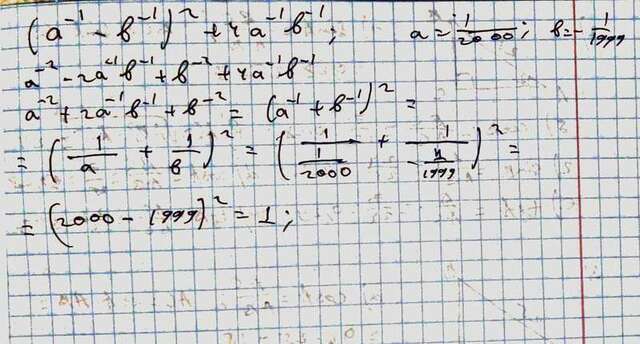 (a⁻¹ - b⁻¹)² + 4a⁻¹b⁻¹; a = 1/2000; b = -1/1999
a⁻² - 2a⁻¹b⁻¹ + b⁻² + 4a⁻¹b⁻¹
a⁻² + 2a⁻¹b⁻¹ + b⁻² = (a⁻¹ + b⁻¹)² =
= (1/a + 1/b)² = (1/(1/2000) + 1/(-1/1999))² =
= (2000 - 1999)² = 1;